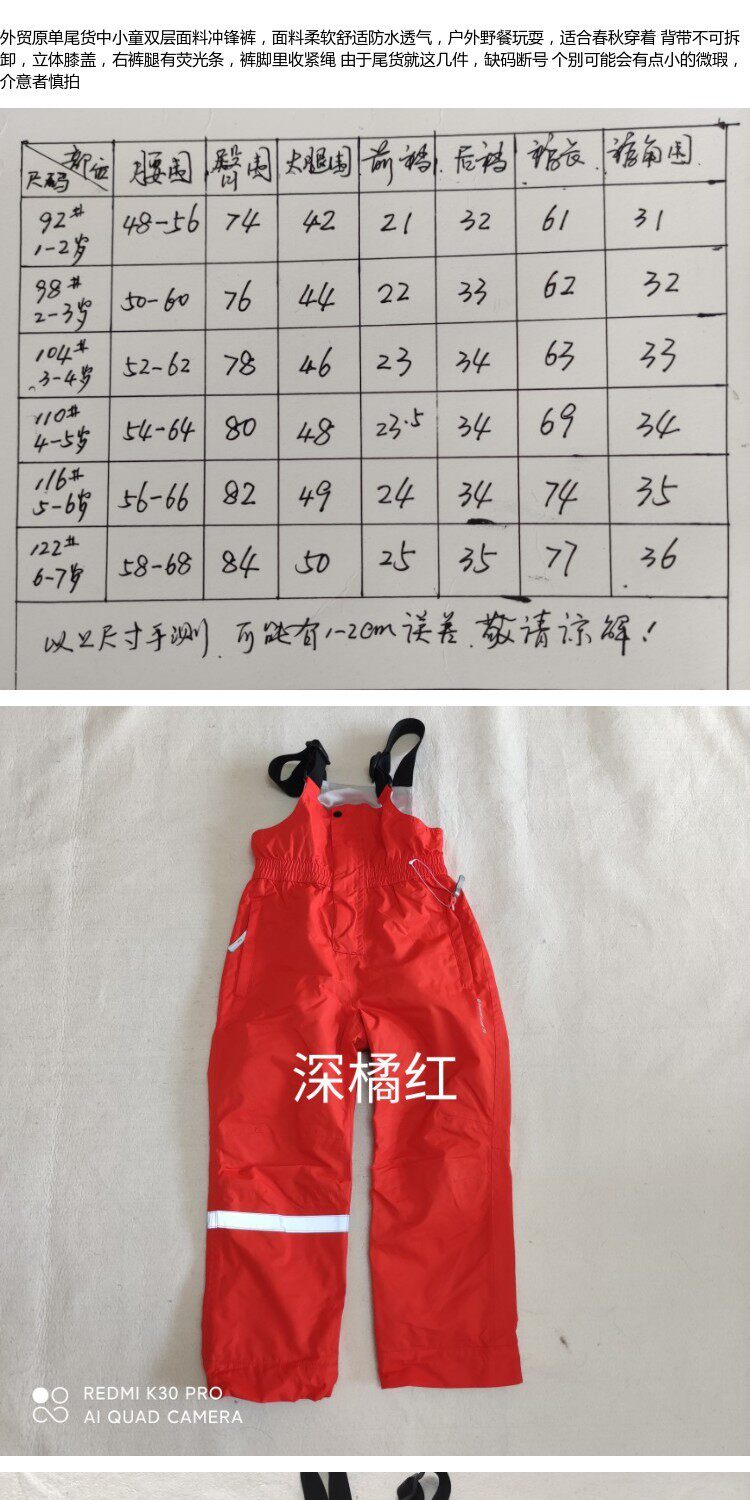 外贸原单尾货中小童双层面料冲锋裤，面料柔软舒适防水透气，户外野餐玩耍，适合春秋穿着 背带不可拆
卸，立体膝盖，右裤腿有荧光条，裤脚里收紧绳 由于尾货就这几件，缺码断号 个别可能会有点小的微瑕，
介意者慎拍
部位 尺码 腰围 臀围 大腿围 前裆 后裆 裤长 裤角围
92# 1-2岁 48-56 74 42 21 32 61 31
98# 2-3岁 50-60 76 44 22 33 62 32
104# 3-4岁 52-62 78 46 23 34 63 33
110# 4-5岁 54-64 80 48 23.5 34 69 34
116# 5-6岁 56-66 82 49 24 34 74 35
122# 6-7岁 58-68 84 50 25 35 77 36
以上尺寸手测，可能有1-2cm误差，敬请谅解！
深橘红
REDMI K30 PRO
AI QUAD CAMERA